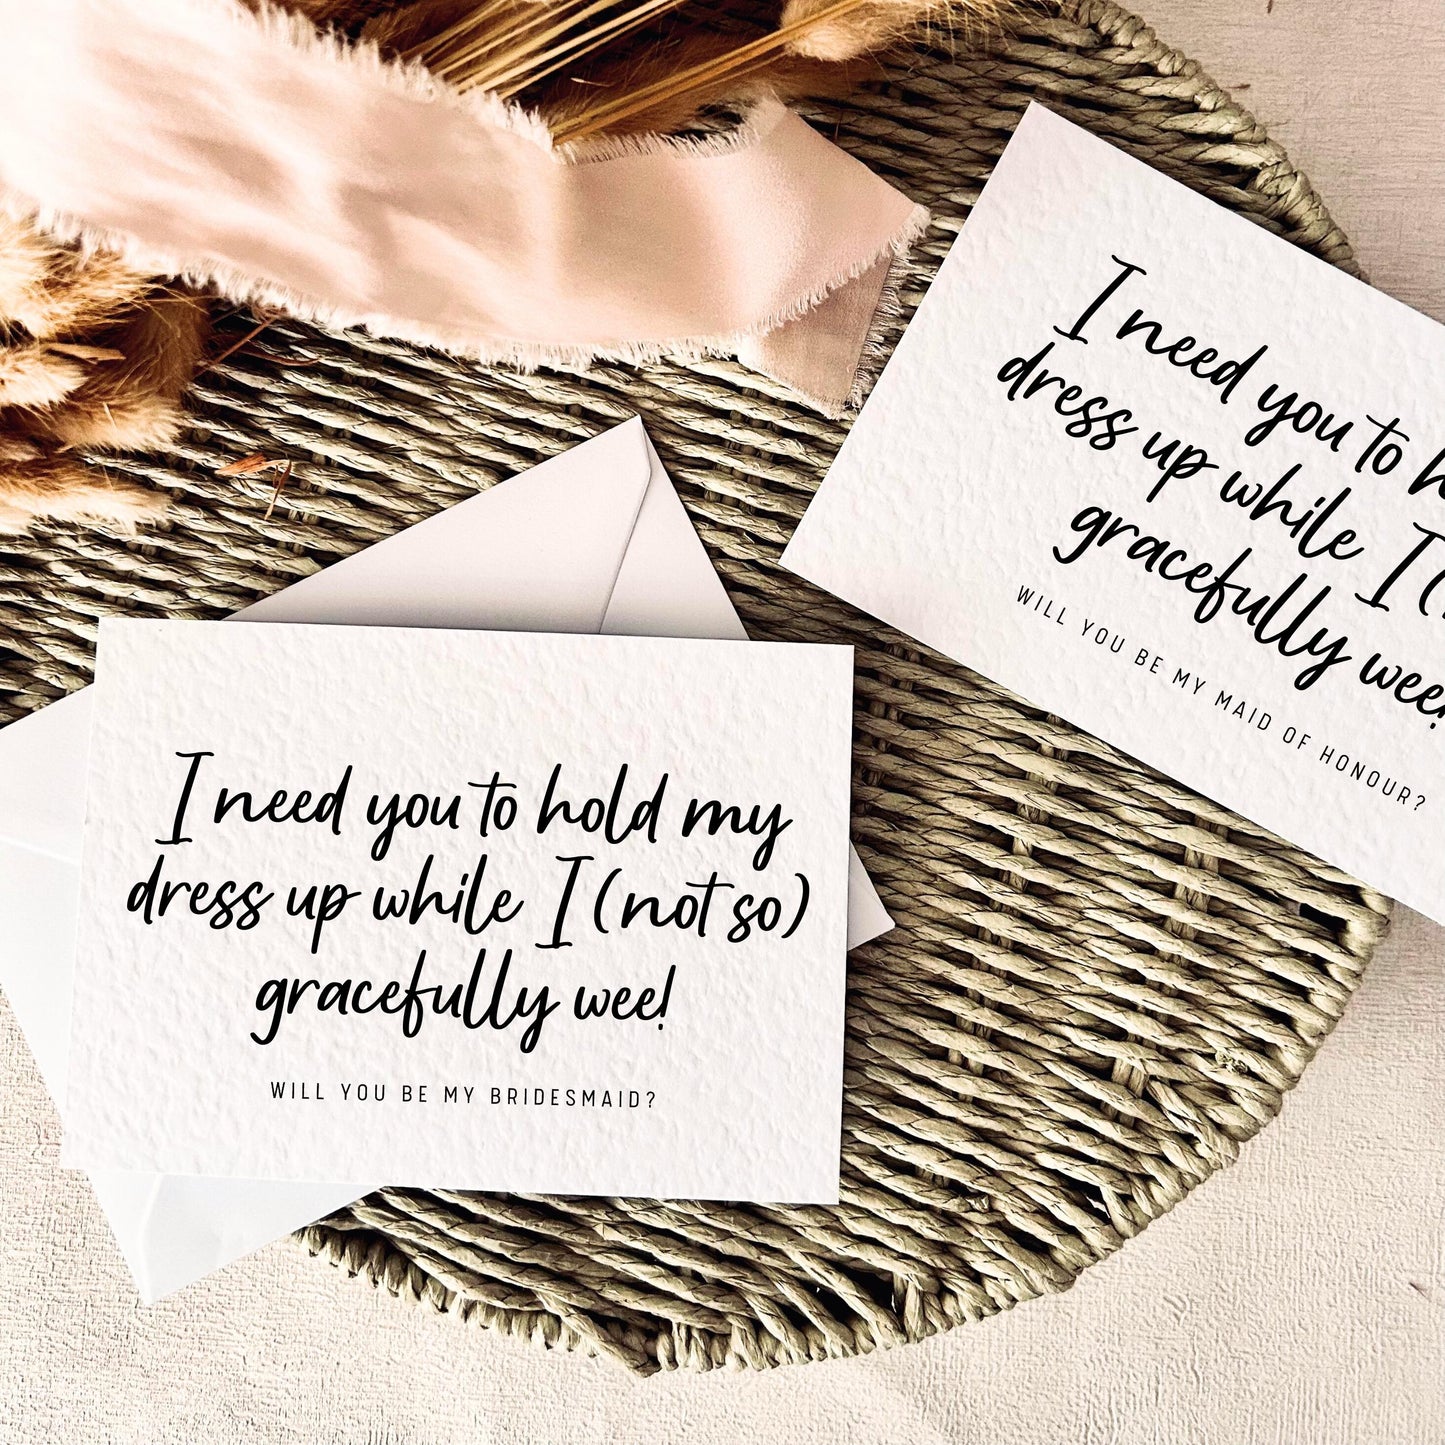 I need you to hold my
dress up while I (not so)
gracefully wee!
WILL YOU BE MY BRIDESMAID?
I need you to
dress up while I (
gracefully wee!
WILL YOU BE MY MAID OF HONOUR?